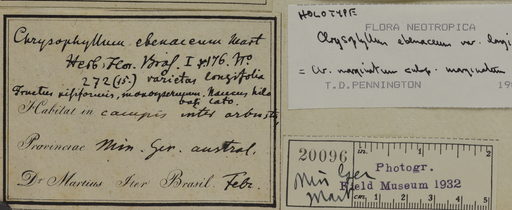 Chrysophyllum ebenaceum Mart
Herb. Flor. Bras. I p 176. No
272 (15.) varietas longifolia
Fructus pisiformis, monospermus. Nucleus hilo
bas. lato.
Habitat in campis inter arbustis
Provinciae Min. Ger. austral.
Dr Martius Iter Brasil. Febr.
HOLOTYPE
FLORA NEOTROPICA
Chrysophyllum ebenaceum var. longi
= Chr. marginatum subsp. marginatum
T.D. PENNINGTON 19
in. 1 2
20096
Min Ger
Mart
Photogr.
Field Museum 1932
cm 1 2 3 4 5